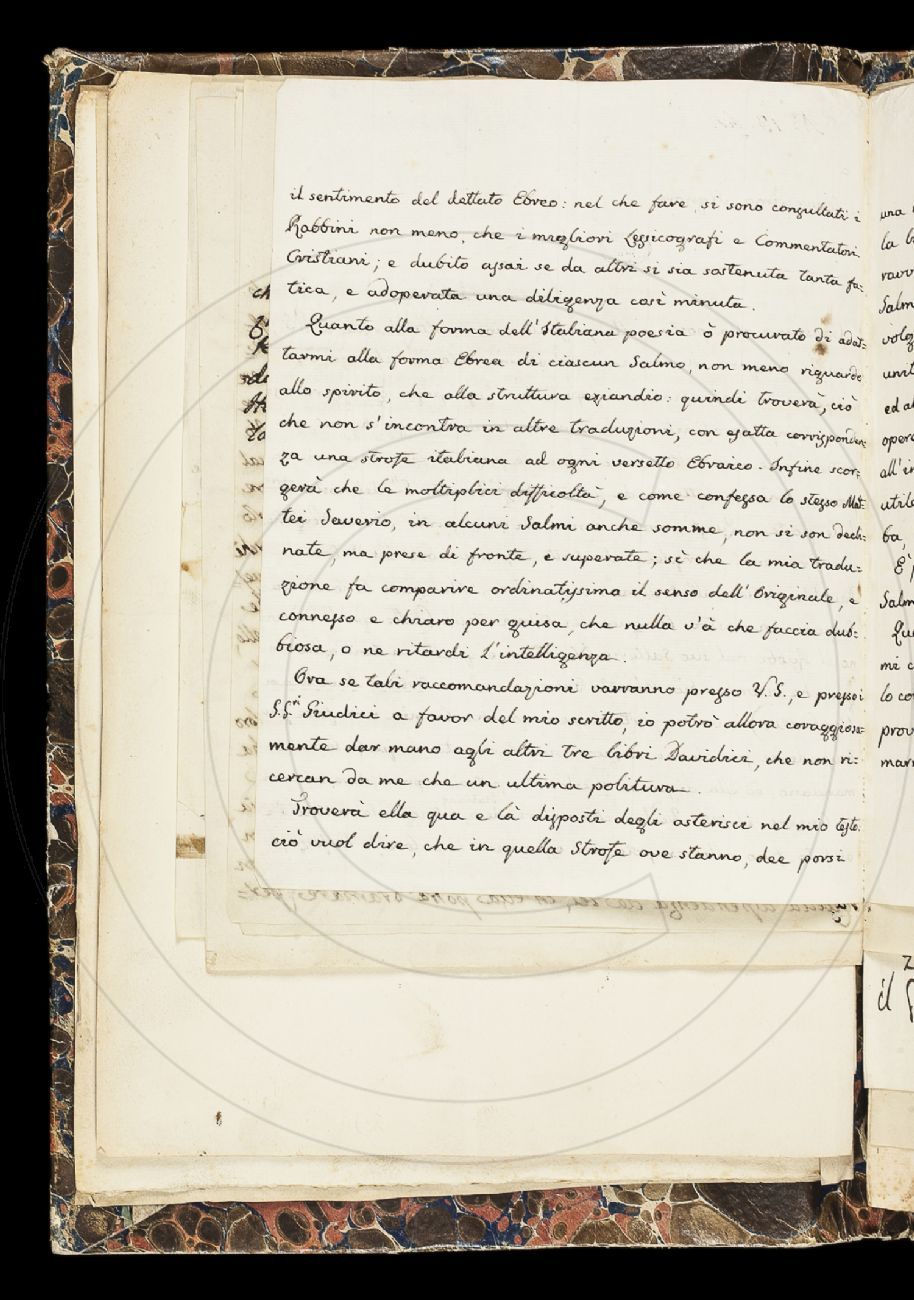 il sentimento del dettato Ebreo: nel che fare, si sono conzultati i
Rabbini non meno, che i migliori Lessicografi e Commentatori
Cristiani; e dubito assai se da altri si sia sostenuta tanta fa:
tica, e adoperata una diligenza così minuta.
Quanto alla forma dell'Italiana poesia ò procurato di adat:
tarmi alla forma Ebrea di ciascun Salmo, non meno riguardo
allo spirito, che alla struttura eziandio: quindi troverà, ciò
che non s'incontra in altre traduzioni, con esatta corrisponden:
za una strofe italiana ad ogni versetto Ebraico. Infine scor:
gerà che le moltiplici difficoltà, e come confessa lo stesso Mat:
tei Saverio, in alcuni Salmi anche somme, non si son decli:
nate, ma prese di fronte, e superate; sì che la mia tradu:
zione fa comparire ordinatissimo il senso dell'Originale, e
connesso e chiaro per guisa, che nulla v'à che faccia dub:
biosa, o ne ritardi l'intelligenza.
Ora se tali raccomandazioni varranno presso V.S., e presso i
S.S.ri Giudici a favor del mio scritto, io potrò allora coraggiosa:
mente dar mano agli altri tre libri Davidici, che non ri:
cercan da me che un ultima politura.
Troverà ella qua e là disposti degli asterisci nel mio testo.
ciò vuol dire, che in quella Strofe ove stanno, dee porsi